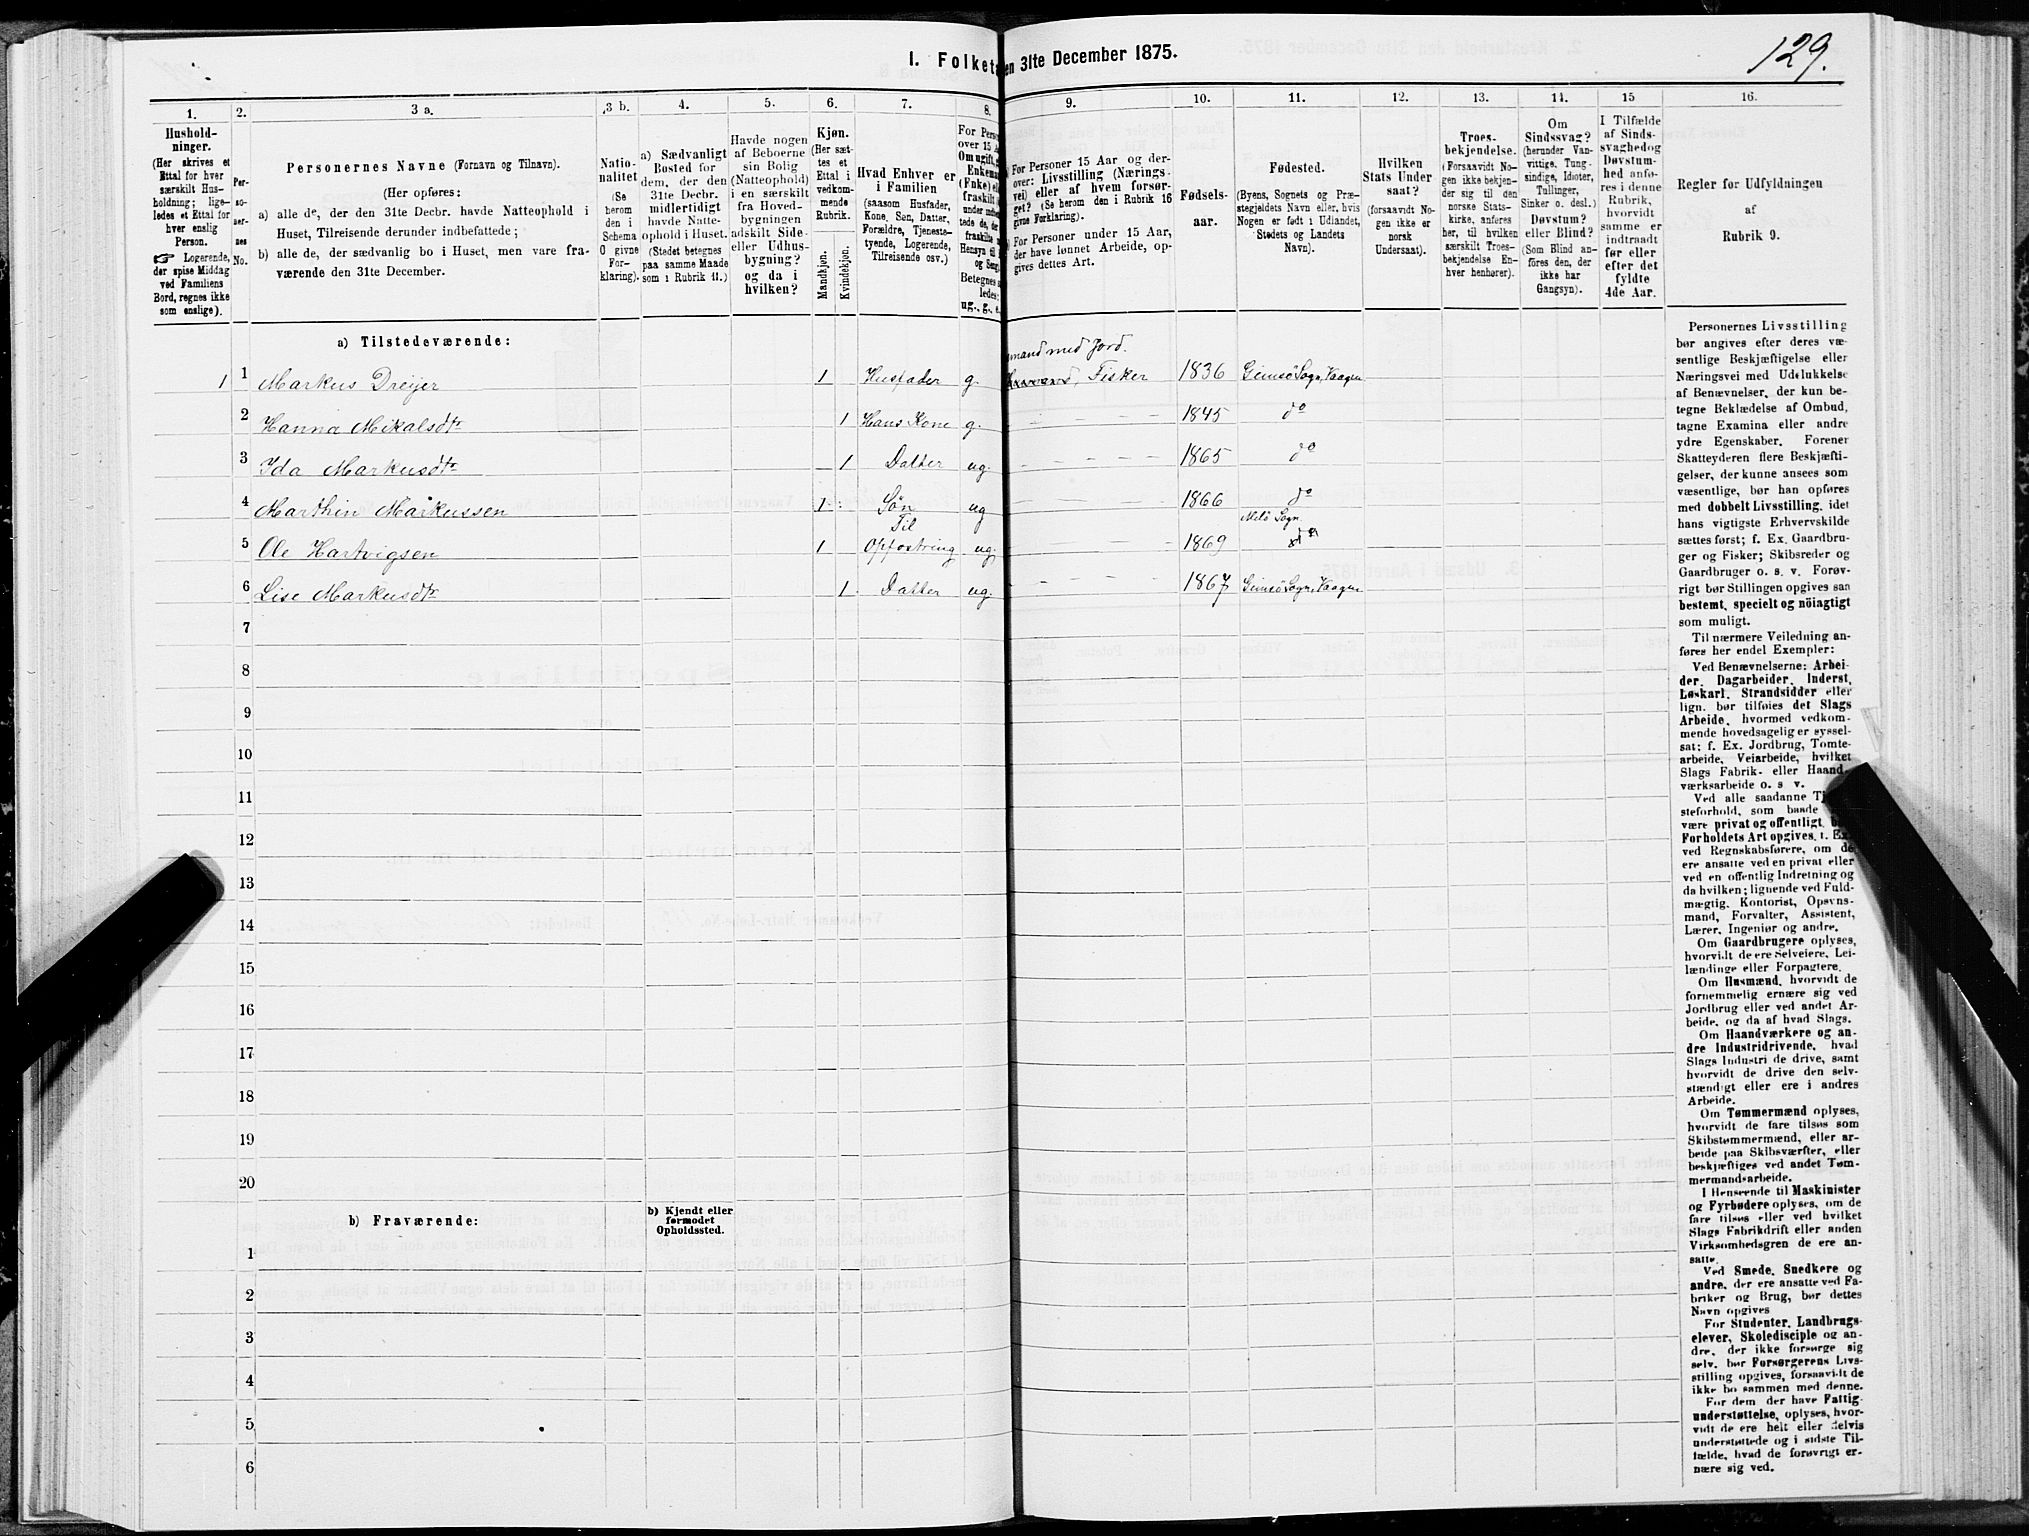 129.
I. Folketa
en 31te December 1875.
1.
2.
3 a.
3 b.
4.
5.
6.
7.
8.
9.
10.
11.
12.
13.
14.
15
16.
Hushold-
ninger.
(Her skrives et
Ettal for hver
særskilt Hus-
holdning; lige-
ledes et Ettal for
hver enslig
Person.
☞ Logerende,
der spise Middag
ved Familiens
Bord, regnes ikke
som enslige).
Per-
so-
ner-
nes
No.
Personernes Navne (Fornavn og Tilnavn).
(Her opføres:
a) alle de, der den 31te Decbr. havde Natteophold i
Huset, Tilreisende derunder indbefattede;
b) alle de, der sædvanlig bo i Huset, men vare fra-
værende den 31te December.
Natio-
nalitet
(Se
herom
den i
Schema
O givne
For-
klaring).
a) Sædvanligt
Bosted for
dem, der den
31te Decbr.
midlertidigt
havde Natte-
ophold i Huset.
(Stedet betegnes
paa samme Maade
som i Rubrik 11.)
Havde nogen
af Beboerne
sin Bolig
(Natteophold)
i en særskilt
fra Hoved-
bygningen
adskilt Side-
eller Udhus-
bygning?
og da i
hvilken?
Kjøn.
(Her sæt-
tes et
Ettal i
vedkom-
mende
Rubrik.
Mandkjøn.
Kvindekjøn.
Hvad Enhver er
i Familien
(saasom Husfader,
Kone, Søn, Datter,
Forældre, Tjeneste-
tyende, Logerende,
Tilreisende osv.)
For Perso
over 15 A
Om ugift, g
Enkema
(Enke) el
fraskilt
under indbe
tede de, fr
fraskilte
Hensyn til
og Seng
Betegnes s
ledes:
ug., g., e.
For Personer 15 Aar og der-
over: Livsstilling (Nærings-
vei) eller af hvem forsør-
get? (Se herom den i Rubrik 16
givne Forklaring).
For Personer under 15 Aar,
der have lønnet Arbeide, op-
gives dettes Art.
Fødsels-
aar.
Fødested.
(Byens, Sognets og Præ-
stegjeldets Navn eller, hvis
Nogen er født i Udlandet,
Stedets og Landets
Navn).
Hvilken
Stats Under
saat?
(forsaavidt No-
gen ikke er
norsk
Undersaat).
Troes-
bekjendelse.
(Forsaavidt No-
gen ikke bekjen-
der sig til den
norske Stats-
kirke, anføres
her, til hvilken
særskilt Troes-
bekjendelse En-
hver henhører).
Om
Sindssvag?
(herunder Van-
vittige, Tung-
sindige, Idioter,
Tullinger,
Sinker o. desl.)
Døvstum?
eller Blind?
(Som Blind an-
føres den, der
ikke har
Gangsyn).
I Tilfælde
af Sinds-
svaghed og
Døvstum-
hed anfø-
res i denne
Rubrik,
hvorvidt
samme er
indtraadt
før eller
efter det
fyldte
4de Aar.
Regler for Udfyldningen
af
Rubrik 9.
a) Tilstedeværende:
mand med Jord.
1 1 Markus Dreijer 1 Husfader g. Fisker 1836 Gimsö Sogn, Vaagen
2 Hanna Mikalsdtr 1 Hans Kone g. 1845 do
3 Ida Markusdtr 1 Datter ug. 1865 do
4 Marthin Markussen 1 Søn ug 1866 do
Til Sogn
5 Ole Hartvigsen 1 Opfostring ug. 1869
6 Lise Markusdtr 1 Datter ug. 1867 Gimsö Sogn, Vaagen
7
8
9
10
11
12
13
14
15
16
17
18
19
20
b) Fraværende:
b) Kjendt eller
formodet
Opholdssted.
1
2
3
4
5
6
Personernes Livsstilling
bør angives efter deres væ-
sentlige Beskjæftigelse eller
Næringsvei med Udelukkelse
af Benævnelser, der kun be-
tegne Beklædelse af Ombud,
tagne Examina eller andre
ydre Egenskaber. Forener
Skatteyderen flere Beskjæfti-
gelser, der kunne ansees som
væsentlige, bør han opføres
med dobbelt Livsstilling, idet
hans vigtigste Erhvervskilde
sættes først; f. Ex. Gaardbru-
ger og Fisker; Skibsreder og
Gaardbruger o. s. v. Forøv-
rigt bør Stillingen opgives saa
bestemt, specielt og nöiagtigt
som muligt.
Til nærmere Veiledning an-
føres her endel Exempler:
Ved Benævnelserne: Arbei-
der, Dagarbeider, Inderst,
Løskarl, Strandsidder eller
lign. bør tilføies det Slags
Arbeide, hvormed vedkom-
mende hovedsagelig er syssel-
sat; f. Ex. Jordbrug, Tomte-
arbeide, Veiarbeide, hvilket
Slags Fabrik- eller Haand-
værksarbeide o. s v.
Ved alle saadanne Tj
steforhold, som baade
være privat og offentligt,
Forholdets Art opgives, f. Ex
ved Regnskabsførere, om de
ere ansatte ved en privat eller
ved en offentlig Indretning og
da hvilken; lignende ved Fuld-
mægtig, Kontorist, Opsyns-
mand, Forvalter, Assistent,
Lærer, Ingeniør og andre.
Om Gaardbrugere oplyses,
hvorvidt de ere Selveiere, Lei-
lændinge eller Forpagtere.
Om Husmænd, hvorvidt de
fornemmelig ernære sig ved
Jordbrug eller ved andet Ar-
beide, og da af hvad Slags.
Om Haandværkere og an-
dre Industridrivende, hvad
Slags Industri de drive, samt
hvorvidt de drive den selv-
stændigt eller ere i andres
Arbeide.
Om Tømmermænd oplyses,
hvorvidt de fare tilsøs som
Skibstømmermænd, eller ar-
beide paa Skibsværfter, eller
beskjæftiges ved andet Tøm-
mermandsarbeide.
I Henseende til Maskinister
og Fyrbødere oplyses, om de
fare tilsøs eller ved hvilket
Slags Fabrikdrift eller anden
Virksomhedsgren de ere an-
satte.
Ved Smede, Snedkere og
andre, der ere ansatte ved Fa-
briker og Brug, bør dettes
Navn opgives
For Studenter, Landbrugs-
elever, Skoledisciple og an-
dre, der ikke forsørge sig
selv, bør Forsørgerens Livs-
stilling opgives, forsaavidt de
ikke bo sammen med denne.
For dem, der have Fattig-
understøttelse, oplyses, hvor-
vidt de ere helt eller delvis
understøttede og i sidste Til-
fælde, hvad de forøvrigt er-
nære sig ved.